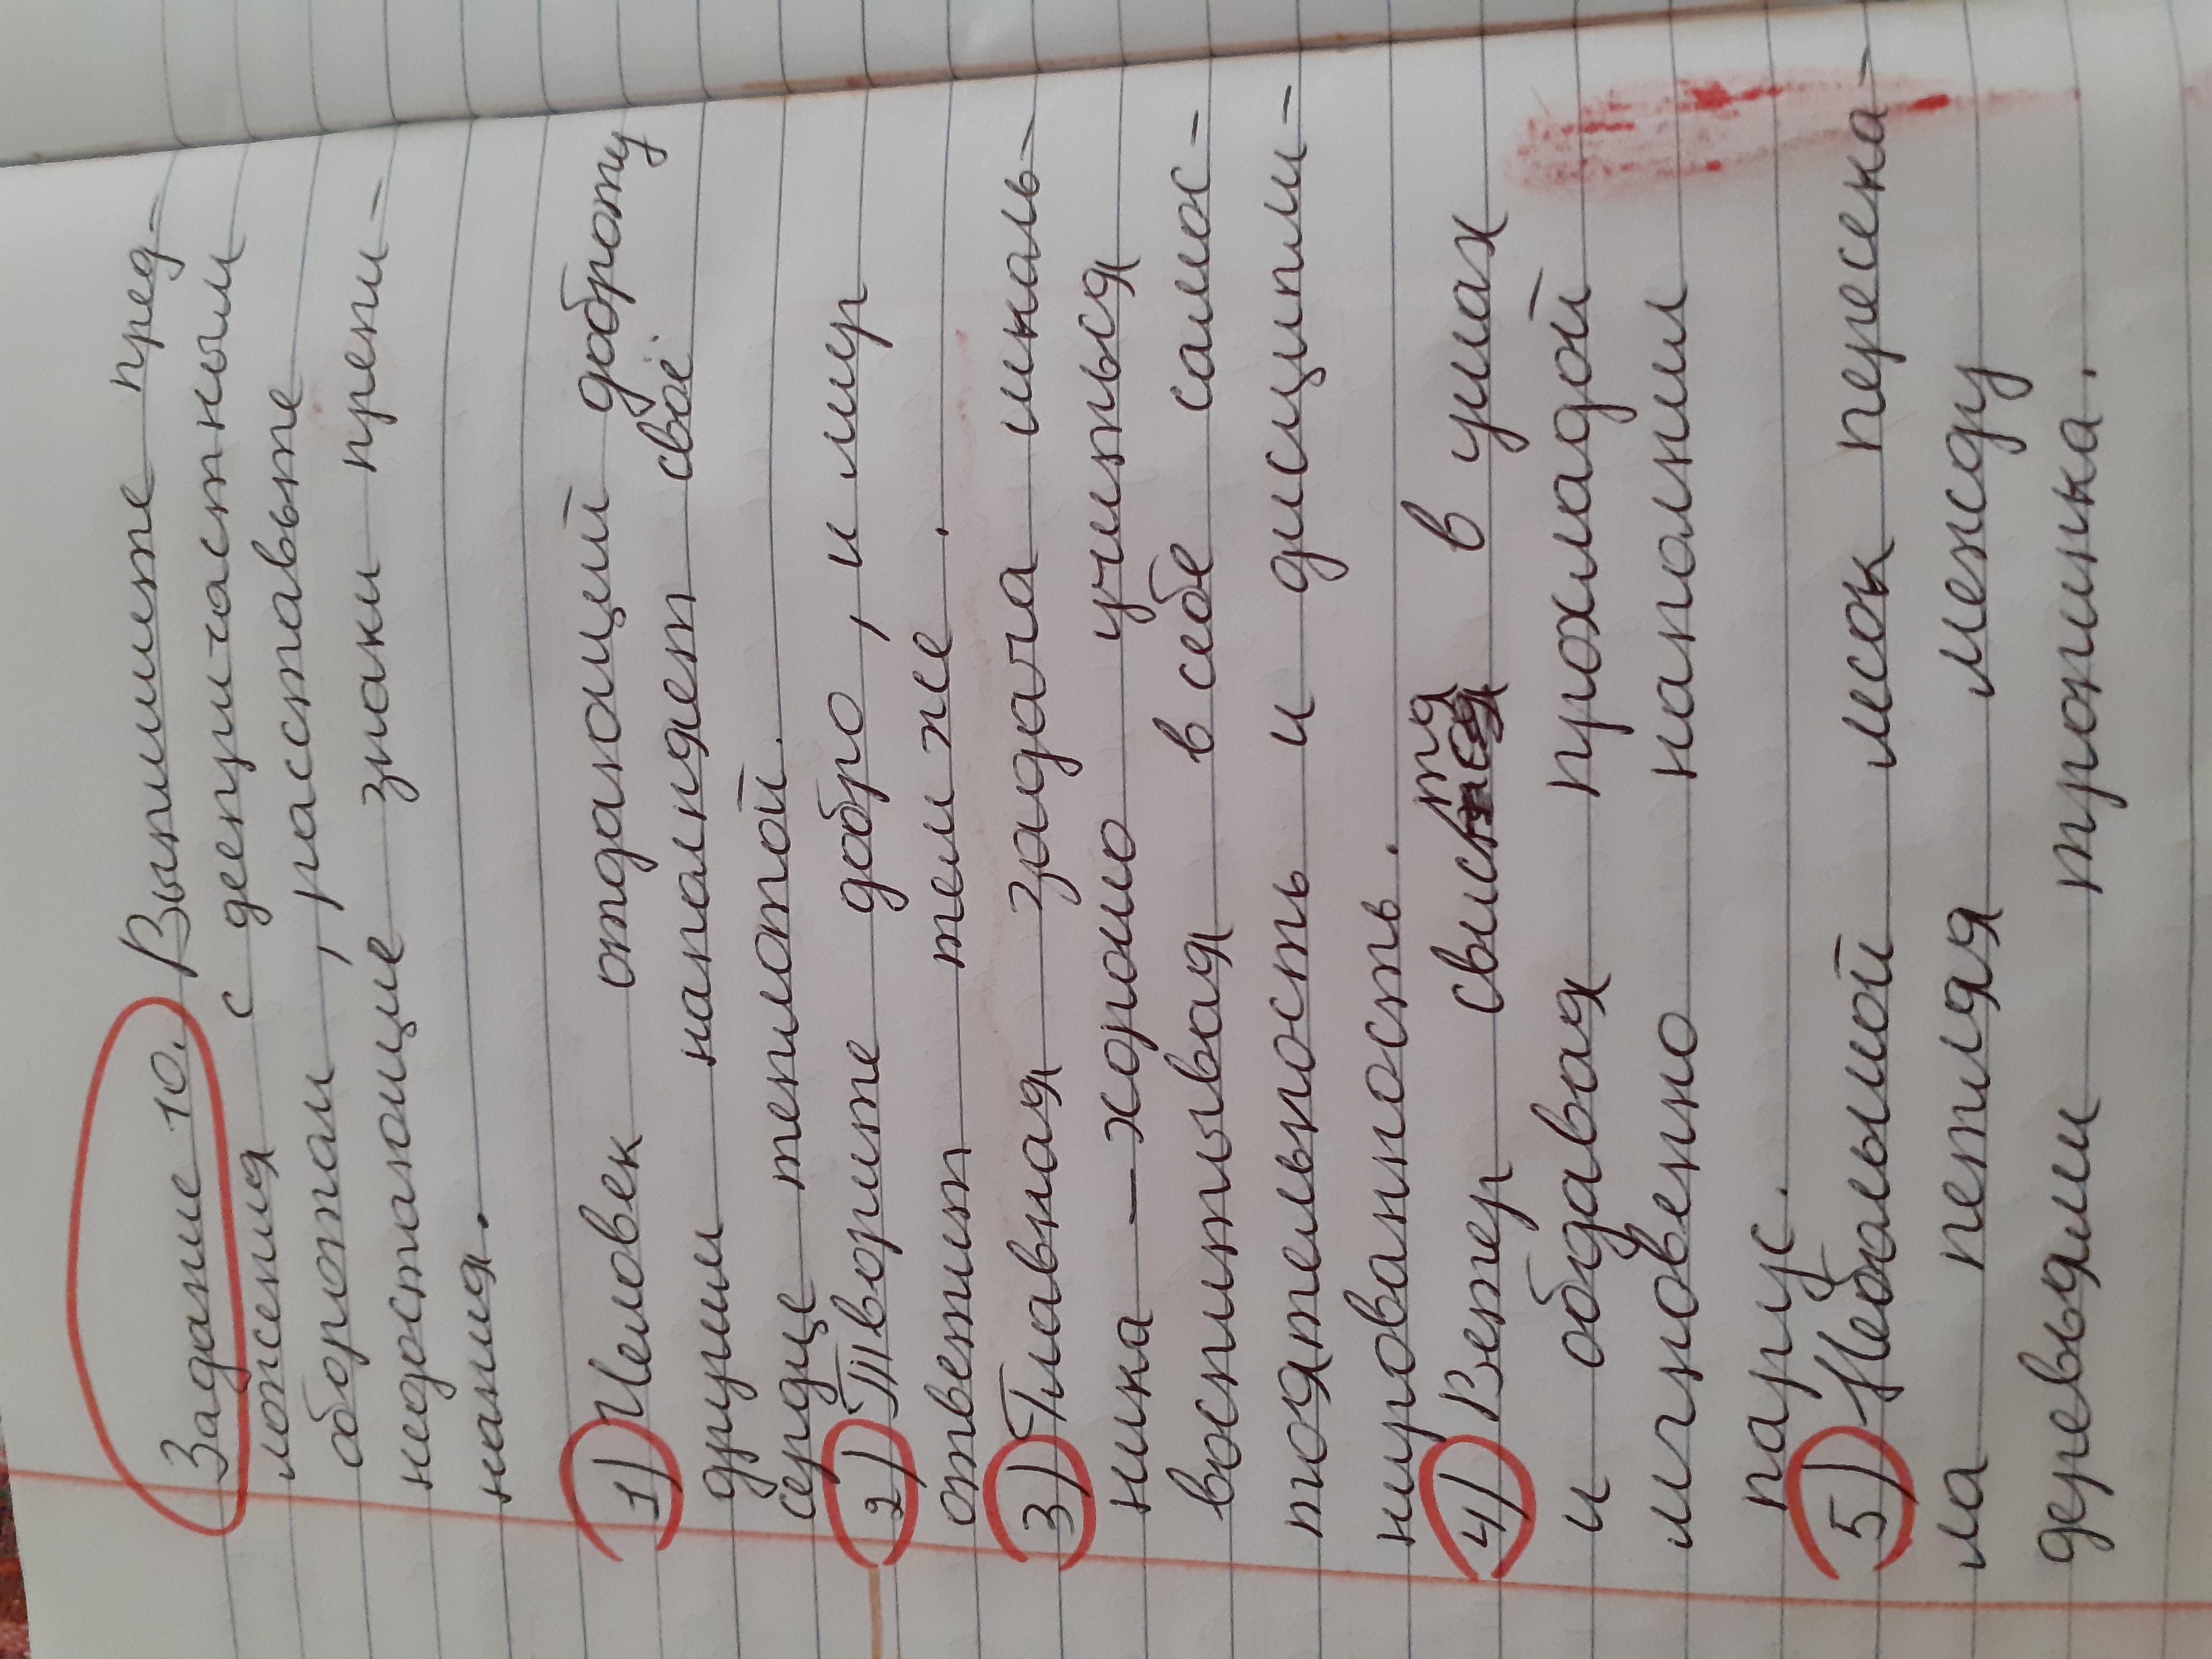 Задание 10. Выпишите пред-
ложения с деепричастным
оборотом, расставьте
недостающие знаки препи-
нания.
1) Человек отдающий доброту
другим наполняет своё
сердце теплотой.
2) Творите добро, и мир
ответит тем же.
3) Главная задача школь-
ника – хорошо учиться
воспитывая в себе самос-
тоятельность и дисципли-
нированность.
4) Ветер свистя в ушах
и обдавая прохладой
мгновенно наполнил
парус.
5) Небольшой лесок пересека-
ла петляя между
деревьями тропинка.